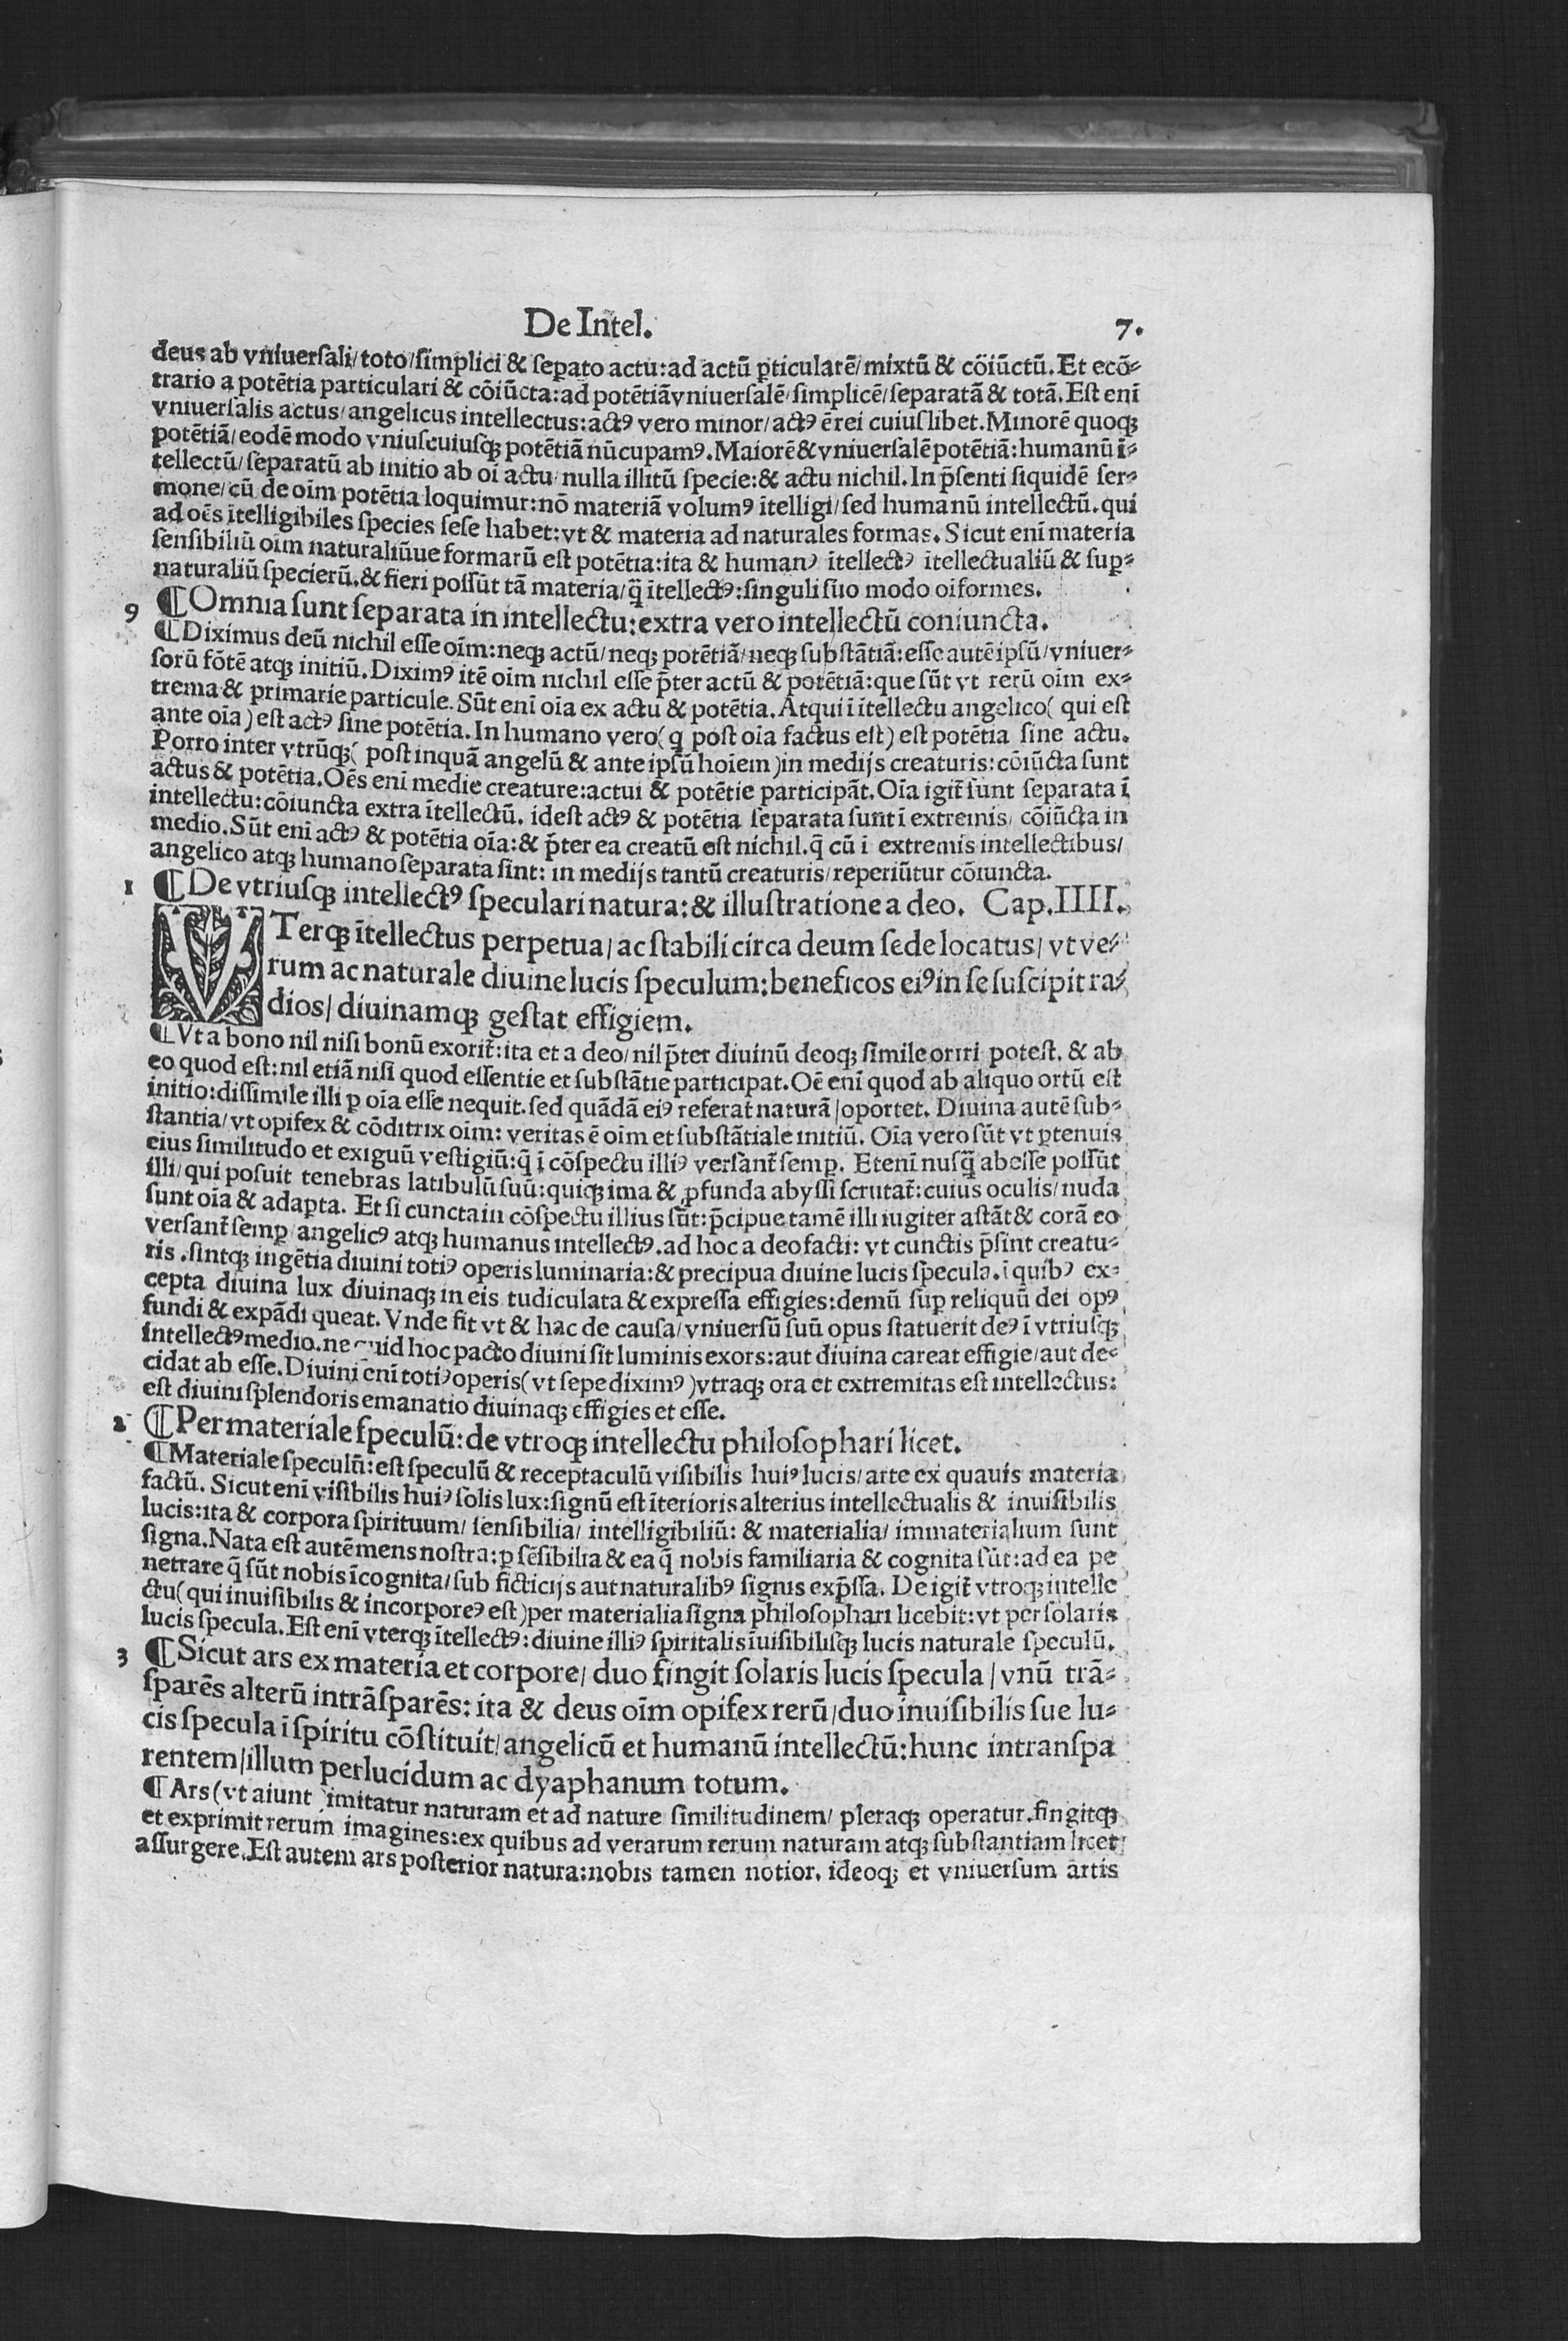 De Intel. 7.
deus ab vniuersali/toto/simplici & sep̱ato actu:ad actũ p̱ticularẽ/mixtũ & cõiũctũ. Et ecõ-
trario a potẽtia particulari & cõiũcta:ad potẽtiãvniuersalẽ/simplicẽ/separatã & totã. Est enĩ
vniuersalis actus/angelicus intellectus:actꝰ vero minor/actꝰ ẽrei cuiuslibet. Minorẽ quoqꝫ
potẽtiã/eodẽ modo vniuscuiusqꝫ potẽtiã nũcupamꝰ. Maiorẽ & vniuersalẽ potẽtiã:humanũ ĩ-
tellectũ/separatũ ab initio ab oĩ actu/nulla illitũ specie:& actu nichil. In p̃senti siquidẽ ser-
mone/cũ de oĩm potẽtia loquimur:nõ materiã volumꝰ ĩtelligi/sed humanũ intellectũ.qui
ad oẽs ĩtelligibiles species sese habet:vt & materia ad naturales formas. Sicut enĩ materia
sensibiliũ oĩm naturaliũue formarũ est potẽtia:ita & humanꝰ ĩtellectꝰ ĩtellectualiũ & sup̱-
naturaliũ specierũ.& fieri possũt tã materia/q̃ ĩtellectꝰ:singuli suo modo oĩformes.
9 ¶ Omnia sunt separata in intellectu:extra vero intellectũ coniuncta.
¶ Diximus deũ nichil esse oĩm:neqꝫ actũ/neqꝫ potẽtiã/neqꝫ substãtiã:esse autẽ ipsũ/vniuer-
sorũ fõtẽ atqꝫ initiũ. Diximꝰ itẽ oĩm nichil esse p̃ter actũ & potẽtiã:que sũt vt rerũ oĩm ex-
trema & primarie particule. Sũt enĩ oĩa ex actu & potẽtia. Atqui ĩ ĩtellectu angelico( qui est
ante oĩa ) est actꝰ sine potẽtia. In humano vero( q̱ post oĩa factus est) est potẽtia sine actu.
Porro inter vtrũqꝫ( post inquã angelũ & ante ipsũ hoĩem )in medijs creaturis:cõiũcta sunt
actus & potẽtia. Oẽs enĩ medie creature:actui & potẽtie participãt. Oĩa igit̃ sunt separata ĩ
intellectu:cõiuncta extra ĩtellectũ. idest actꝰ & potẽtia separata sunt ĩ extremis/ cõiũcta in
medio. Sũt enĩ actꝰ & potẽtia oĩa:& p̃ter ea creatũ est nichil.q̃ cũ ĩ extremis intellectibus/
angelico atqꝫ humano separata sint: in medijs tantũ creaturis/reperiũtur cõiuncta.
1 ¶ De vtriusqꝫ intellectꝰ speculari natura:& illustratione a deo. Cap.IIII.
VTerqꝫ ĩtellectus perpetua/ac stabili circa deum sede locatus/vt ve-
rum ac naturale diuine lucis speculum:beneficos eiꝰ in se suscipit ra-
dios/diuinamqꝫ gestat effigiem.
¶ Vt a bono nil nisi bonũ exorit̃:ita et a deo/nil p̃ter diuinũ deoqꝫ simile oriri potest. & ab
eo quod est:nil etiã nisi quod essentie et substãtie participat. Oẽ enĩ quod ab aliquo ortũ est
initio:dissimile illi p̱ oĩa esse nequit.sed quãdã eiꝰ referat naturã/oportet. Diuina autẽ sub-
stantia/vt opifex & cõditrix oĩm: veritas ẽ oĩm et substãtiale initiũ. Oĩa vero sũt vt p̱tenuis
eius similitudo et exiguũ vestigiũ:q̃ ĩ cõspectu illiꝰ versant̃ semp̱. Etenĩ nusq̃ abesse possũt
illi/qui posuit tenebras latibulũ suũ:quiqꝫ ima & ꝓfunda abyssi scrutat̃:cuius oculis/nuda
sunt oĩa & adap̱ta. Et si cuncta in cõspectu illius sũt:p̃cipue tamẽ illi iugiter astãt & corã eo
versant̃ semp̱/angelicꝰ atqꝫ humanus intellectꝰ.ad hoc a deo facti: vt cunctis p̃sint creatu-
ris.sintqꝫ ingẽtia diuini totiꝰ operis luminaria:& precipua diuine lucis specula.ĩ quibꝰ ex-
cepta diuina lux diuinaqꝫ in eis tudiculata & expressa effigies:demũ sup̱ reliquũ dei opꝰ
fundi & expãdi queat. Vnde fit vt & hac de causa/vniuersũ suũ opus statuerit deꝰ ĩ vtriusqꝫ
intellectꝰ medio.ne quid hoc pacto diuini sit luminis exors:aut diuina careat effigie/aut de-
cidat ab esse. Diuini enĩ totiꝰ operis( vt sepe diximꝰ )vtraqꝫ ora et extremitas est intellectus:
est diuini splendoris emanatio diuinaqꝫ effigies et esse.
2 ¶ Per materiale speculũ:de vtroqꝫ intellectu philosophari licet.
¶ Materiale speculũ:est speculũ & receptaculũ visibilis huiꝰ lucis/arte ex quauis materia
factũ. Sicut enĩ visibilis huiꝰ solis lux:signũ est ĩterioris alterius intellectualis & inuisibilis
lucis:ita & corpora spirituum/ sensibilia/ intelligibiliũ: & materialia/ immaterialium sunt
signa. Nata est autẽ mens nostra:p̱ sẽsibilia & ea q̃ nobis familiaria & cognita sũt:ad ea pe
netrare q̃ sũt nobis ĩcognita/sub ficticijs aut naturalibꝰ signis exp̃ssa. De igit̃ vtroqꝫ intelle
ctu( qui inuisibilis & incorporeꝰ est )per materialia signa philosophari licebit:vt per solaris
lucis specula. Est enĩ vterqꝫ ĩtellectꝰ:diuine illiꝰ spiritalis ĩuisibilisqꝫ lucis naturale speculũ.
3 ¶ Sicut ars ex materia et corpore/ duo fingit solaris lucis specula/vnũ trã-
sparẽs alterũ intrãsparẽs: ita & deus oĩm opifex rerũ/duo inuisibilis sue lu-
cis specula ĩ spiritu cõstituit/angelicũ et humanũ intellectũ:hunc intranspa
rentem/illum perlucidum ac dyaphanum totum.
¶ Ars(vt aiunt )imitatur naturam et ad nature similitudinem/ pleraqꝫ operatur.fingitqꝫ
et exprimit rerum imagines:ex quibus ad verarum rerum naturam atqꝫ substantiam licet
assurgere. Est autem ars posterior natura:nobis tamen notior. ideoqꝫ et vniuersum artis